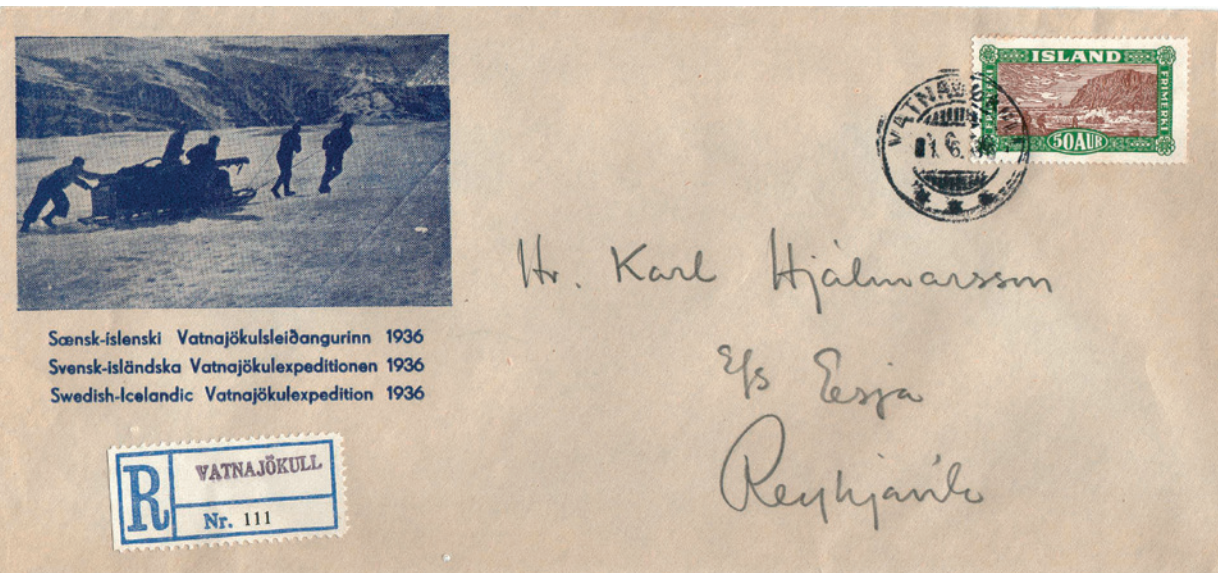 Sænsk-íslenski Vatnajökulsleiðangurinn 1936
Svensk-isländska Vatnajökulexpeditionen 1936
Swedish-Icelandic Vatnajökulexpedition 1936
R
VATNAJÖKULL
Nr. 111
ÍSLAND
FRÍMERKI
50 AUR
Hr. Karl Hjálmarsson
E/s Esja
Reykjavík